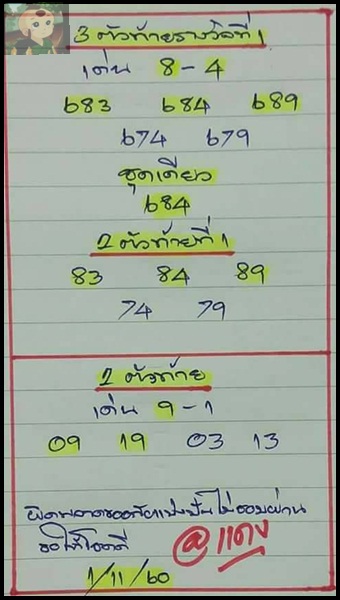 3 ตัวท้ายรางวัลที่ 1
เด่น 8-4
683 684 689
674 679
ชุดเดียว
684
2 ตัวท้ายที่ 1
83 84 89
74 79
2 ตัวท้าย
เด่น 9-1
09 19 03 13
ผิดพลาดขออภัย
ขอให้โชคดี
@แดง
1/11/60